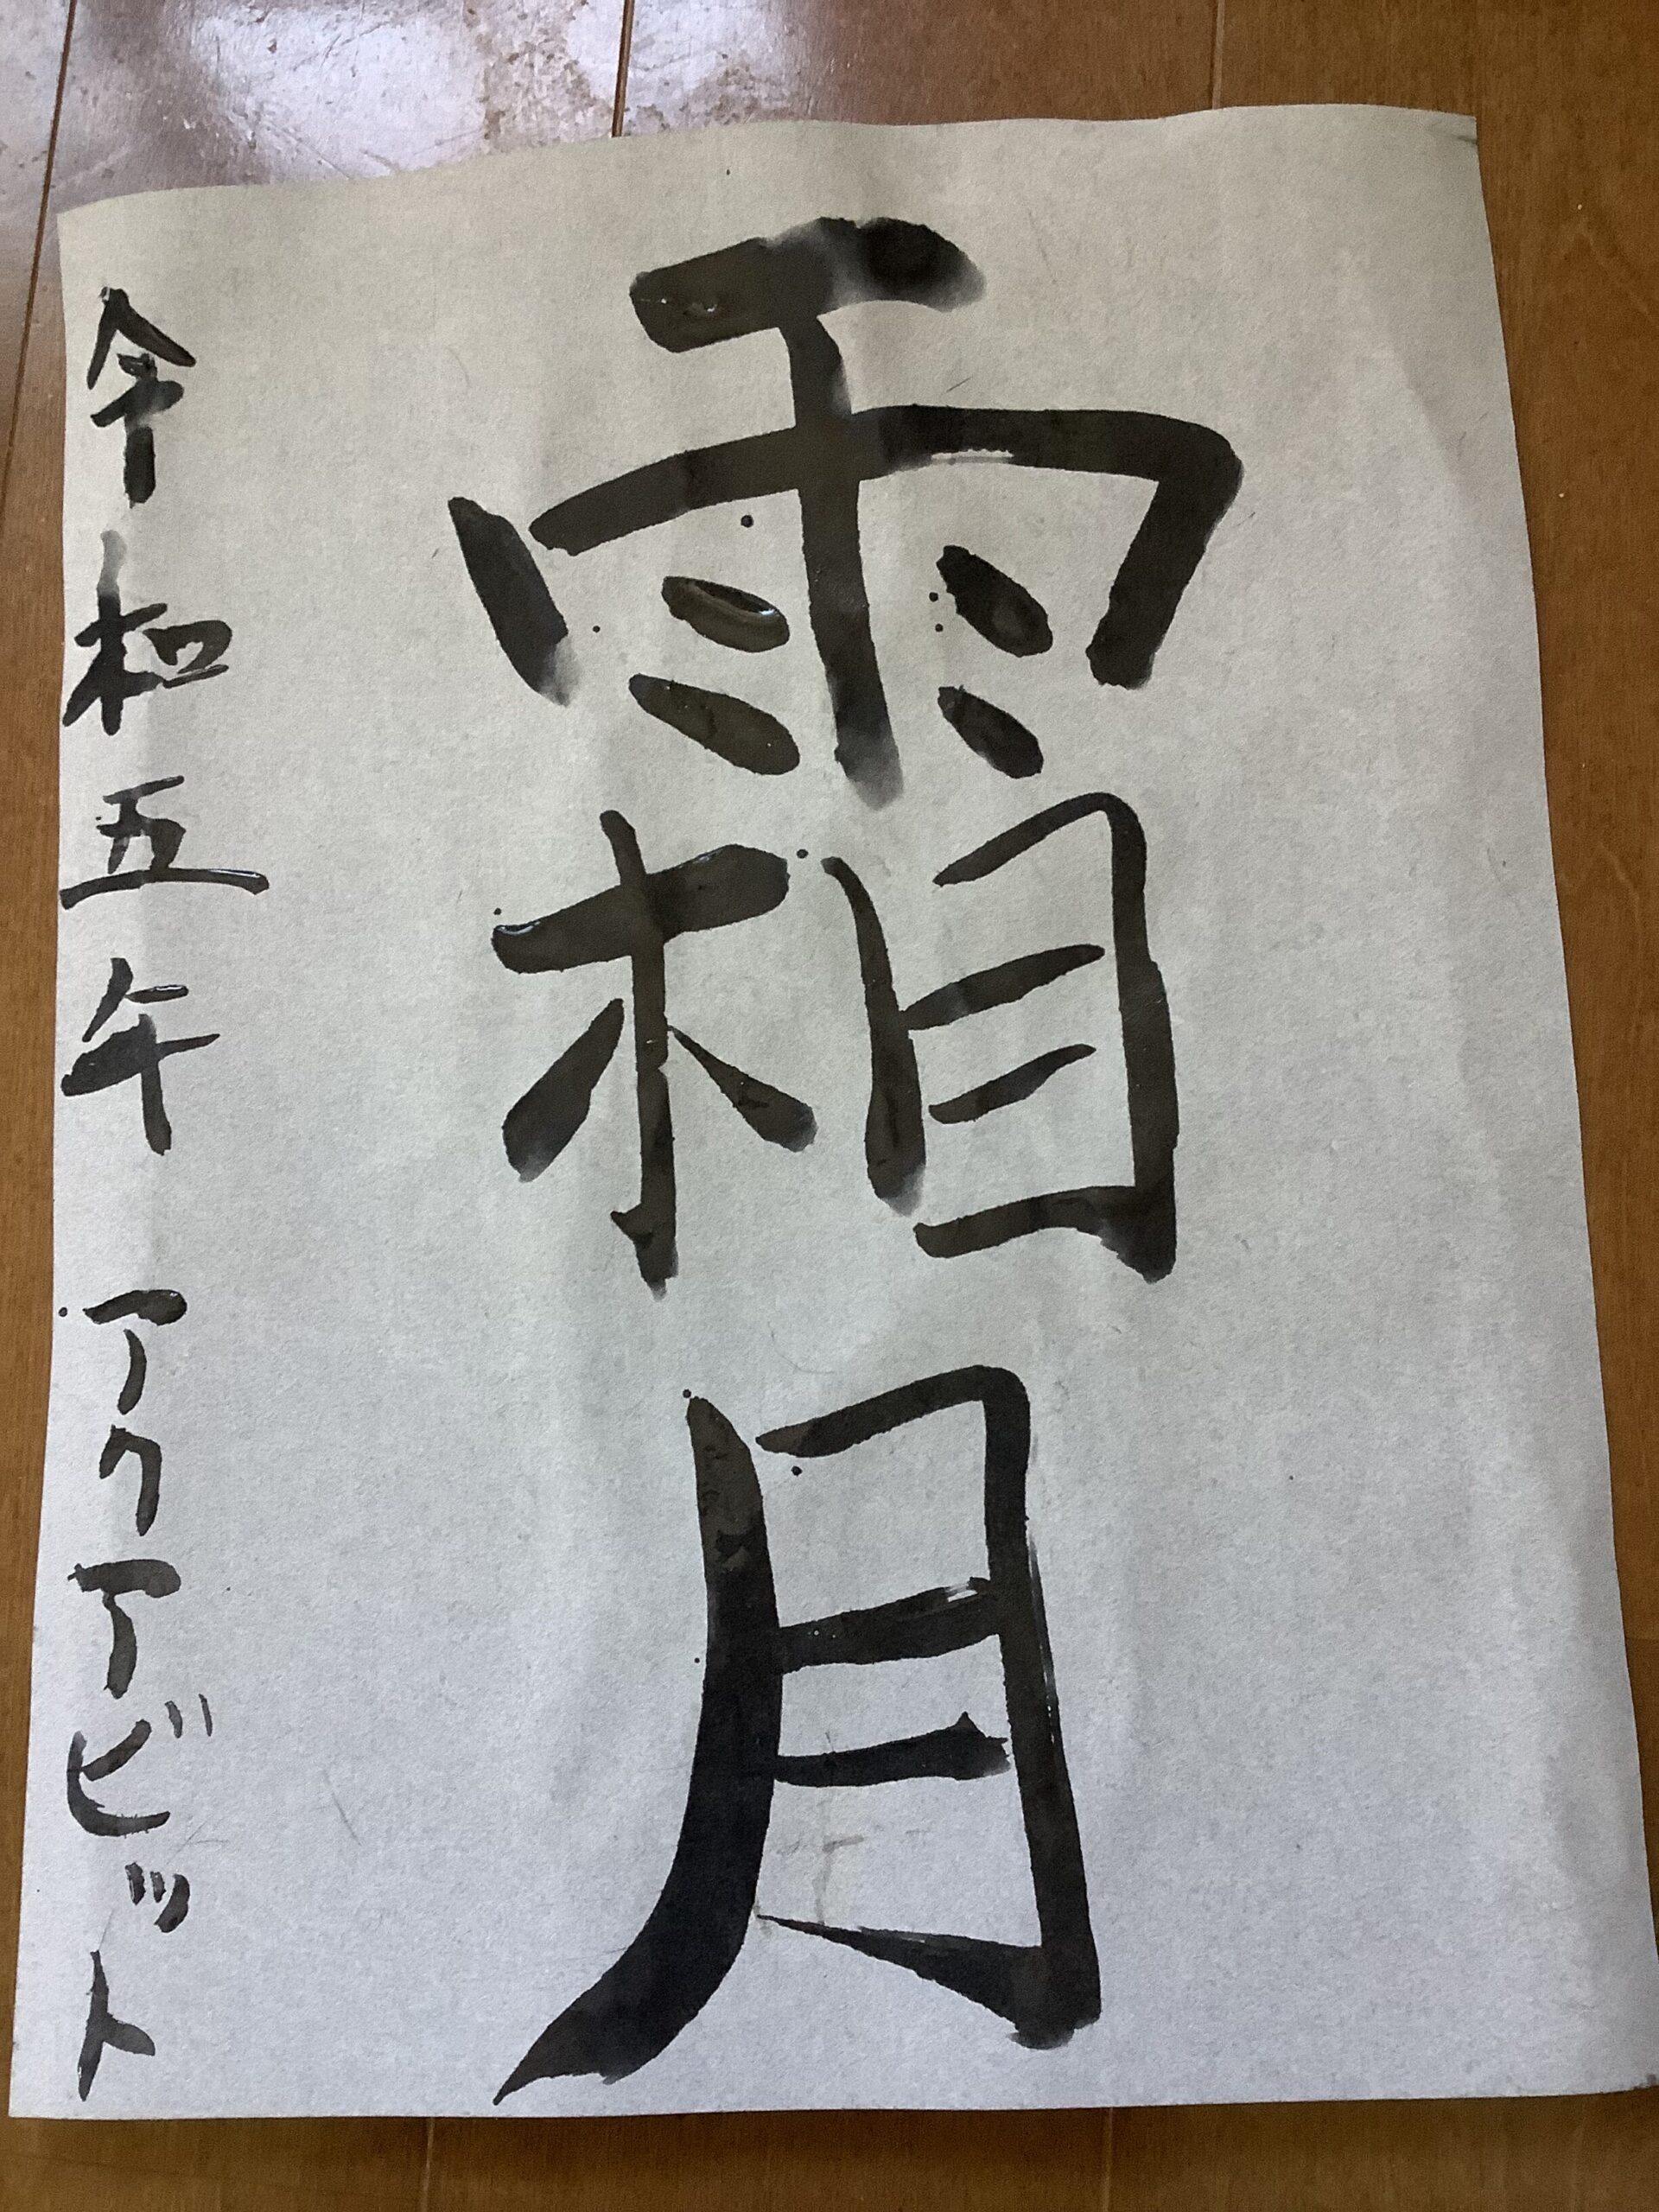 霜月
令和五年 アクアビット